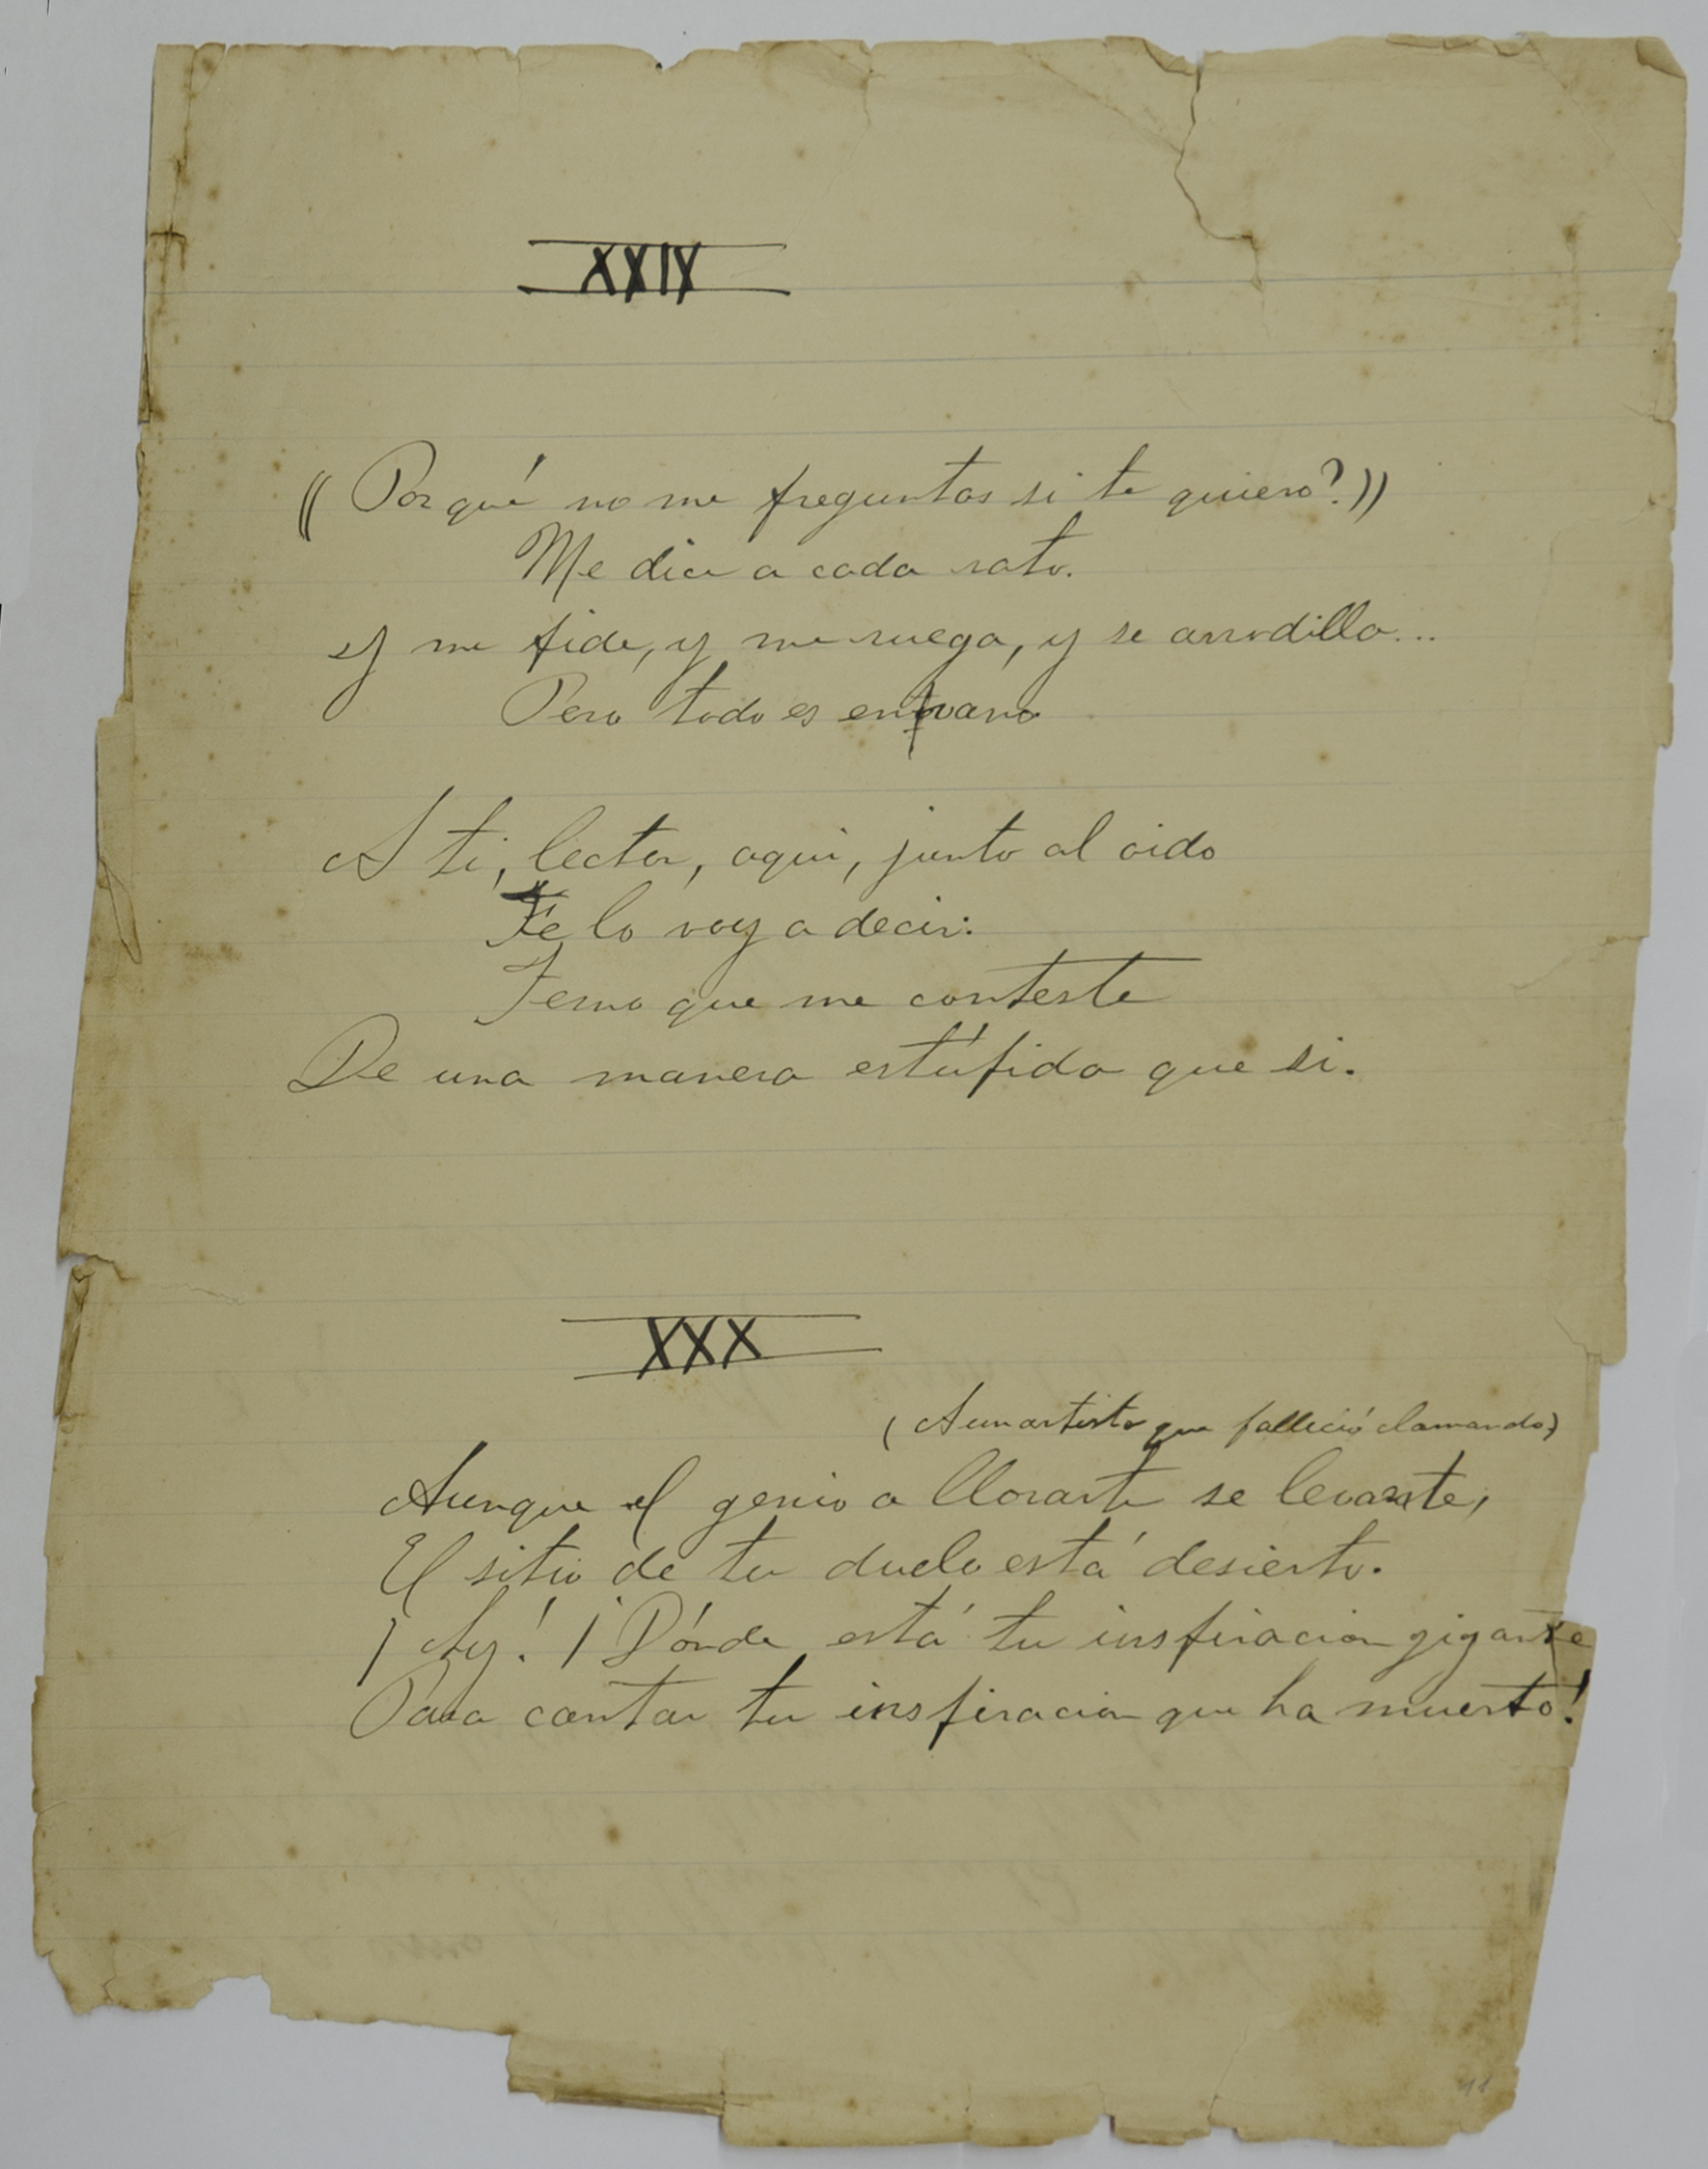 XXIX
((Porqué no me preguntas si te quiero?))
Me dice a cada rato.
Y me pide, y me ruega, y se arrodilla...
Pero todo es en vano
A ti, lector, aqui, junto al oido
Te lo voy a decir:
Temo que me conteste
De una manera estúpida que si.
XXX
(A un artista que falleció clamando)
Aunque el genio a llorarte se levante,
El sitio de tu duelo está desierto.
¡Ay! ¡Dónde está tu inspiracion gigante
Para cantar tu inspiracion que ha muerto!